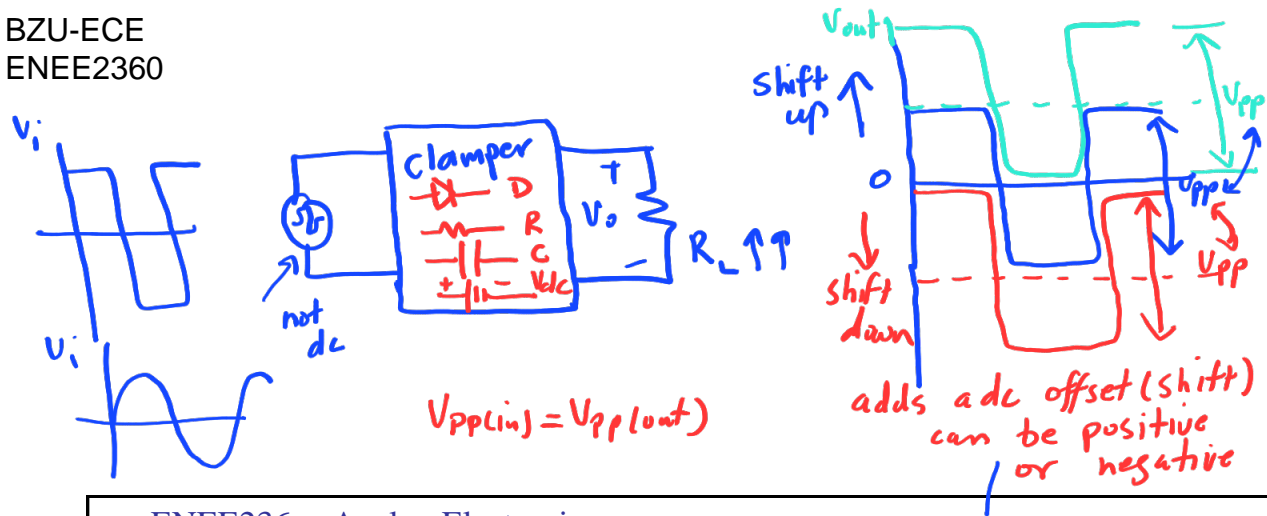 BZU-ECE
ENEE2360
Vi
Vi
not
dc
Clamper
D
R
C
+ - Vdc
+
Vo
-
RL ↑↑
Vpp(in) = Vpp(out)
Vout
Shift
up
0
shift
down
Vpp
Vpp
Vpp
adds a dc offset (shift)
can be positive
or negative